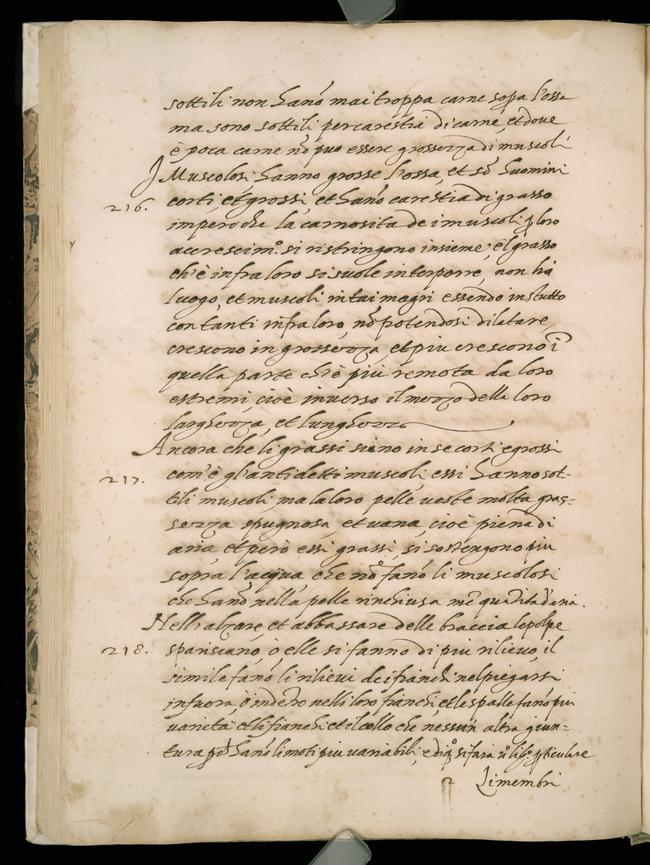 sottili non hanō mai troppa carne sopra l'ossa
ma sono sottili per carestia di carne, et doue
è poca carne nō può essere grossezza di muscoli
I Muscolosi hanno grosse l'ossa, et sō huomini
216. corti, et grossi, et hanō carestia di grasso
imperoche la carnosita de i muscoli ꝑ loro
accrescimº. si ristringono insieme, e'l grasso
ch'è infra loro si suole interporre, non hà
luogo, et muscoli in tai magri essendo in tutto
contanti infra loro, nō potendosi dilatare,
crescono in grossezza, et più crescono ī
quella parte ch'è più remota da loro
estremi, cioè inuerso il mezzo della loro
larghezza, et lunghezza
Ancora che li grassi sieno in se corti e grossi
217. com'è gl'antidetti muscoli essi hanno sot-
tili muscoli, ma la loro pelle ueste molta gras=
sezza spugnosa, et uana, cioè piena di
aria, et però essi grassi, si sostengono più
sopra l'acqua, che nō fanō li muscolosi
che hanō nella pelle rinchiusa mē quātita d'aria.
Nell'alzare, et abbassare delle braccia le polpe
218. spariscano, o elle si fanno di più rilieuo, il
simile fanō li rilieui de i fianchi nel piegarsi
infuora, e indētro nelli loro fianchi, et le spalle fanō più
uarietà et li fianchi et il collo che nessun altra giun=
tura ꝑchè hanō li moti più uariabili, e di qº si farà ū libº. ꝑticulare
Li membri